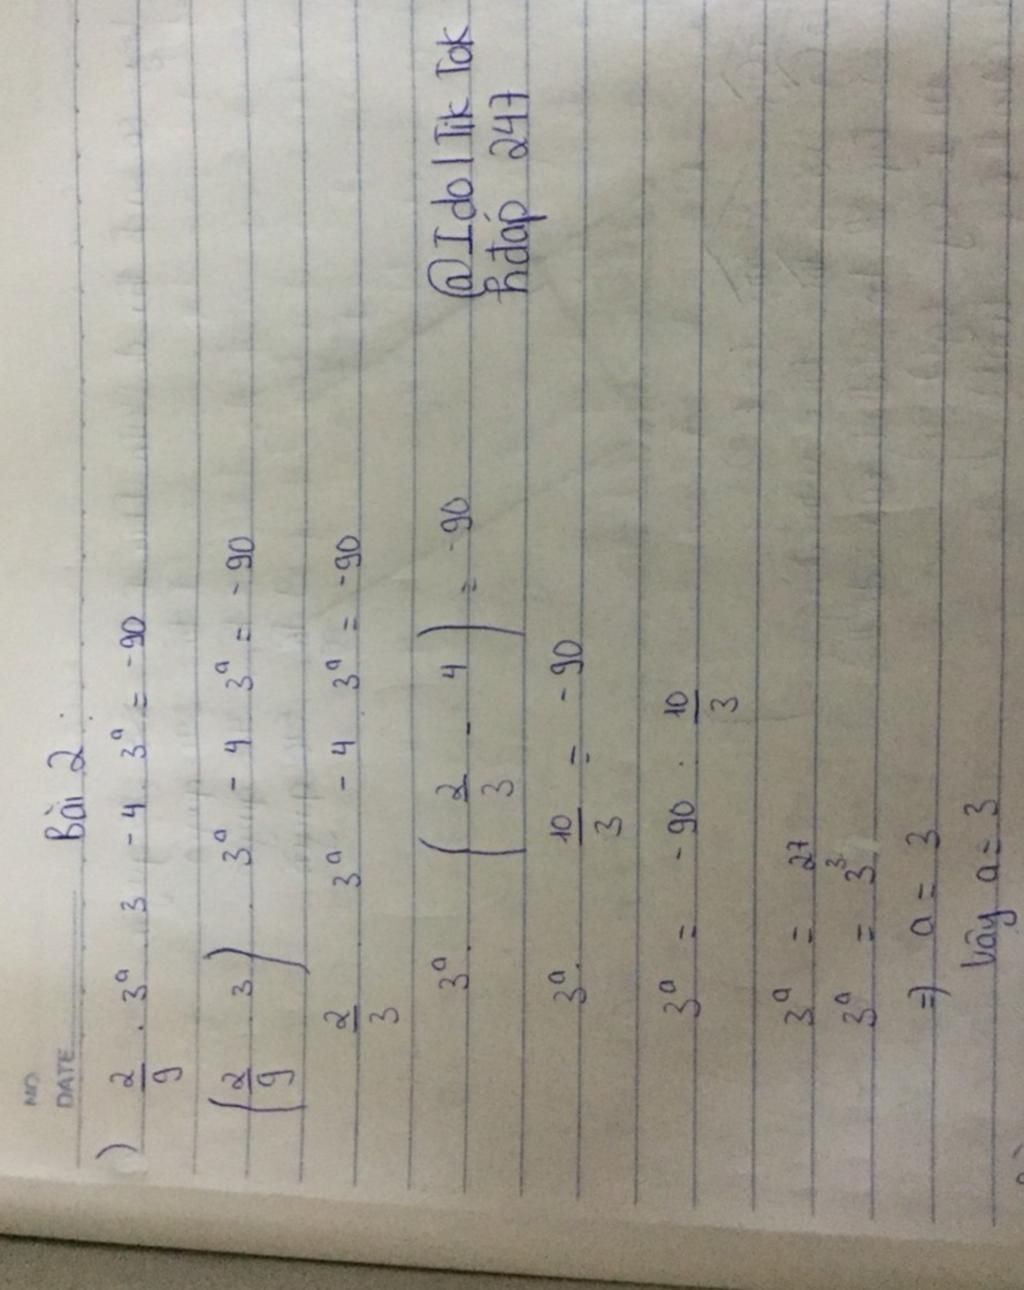 NO
DATE
Bài 2:
) 2/9 . 3^a . 3 - 4 . 3^a = -90
(2/9 . 3) . 3^a - 4 . 3^a = -90
2/3 . 3^a - 4 . 3^a = -90
3^a . (2/3 - 4) = -90
3^a . 10/3 = -90
3^a = -90 . 10/3
3^a = 27
3^a = 3^3
=) a = 3
Vậy a = 3
@Idol Tik Tok
hđáp 247